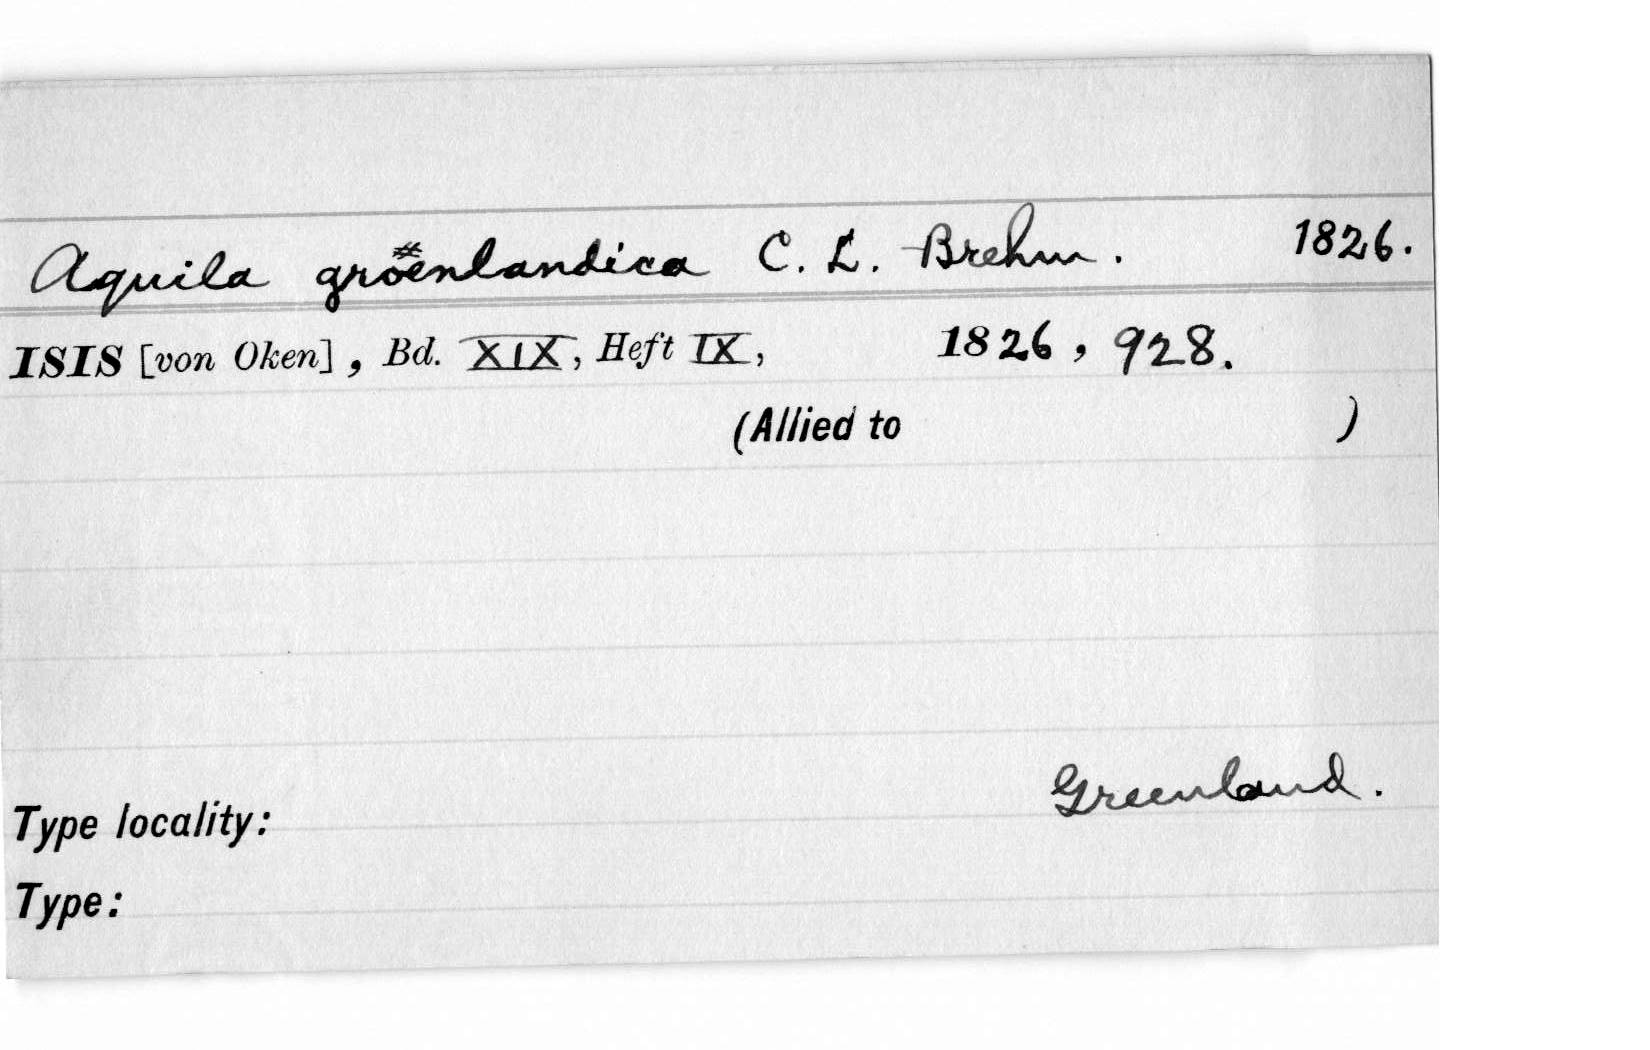 Aquila groenlandica C. L. Brehm. 1826.
ISIS [von Oken], Bd. XIX, Heft IX, 1826, 928.
(Allied to )
Greenland.
Type locality:
Type: